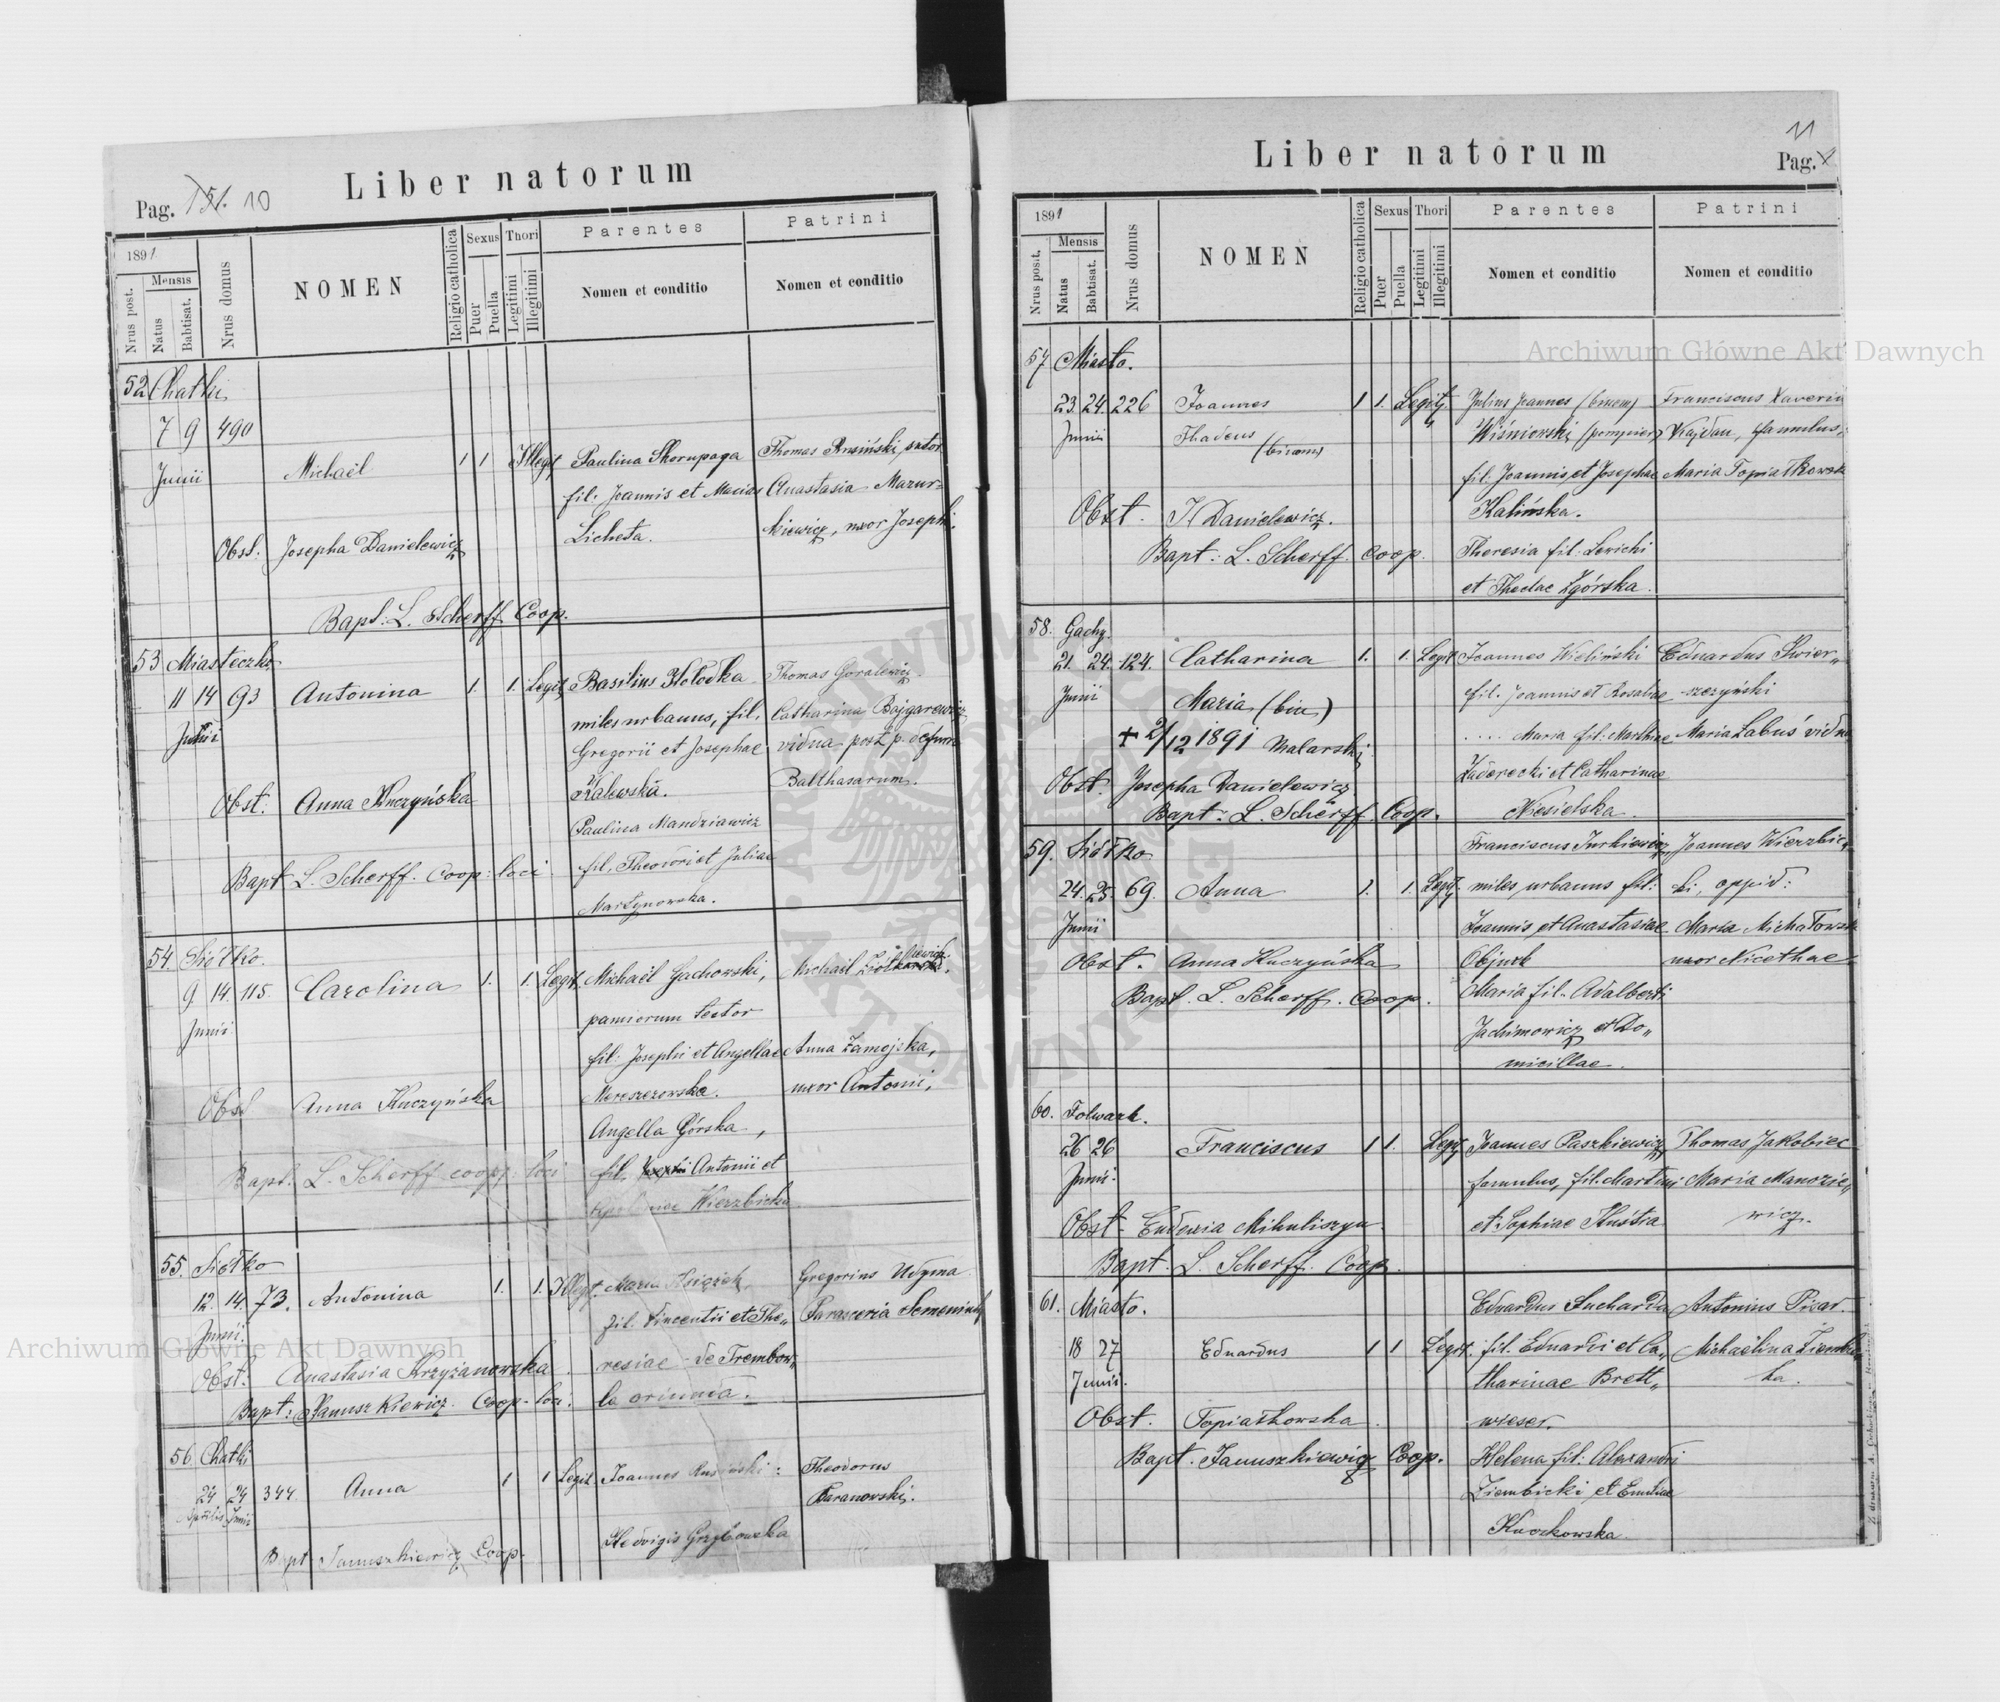 Liber natorum
Pag. 151. 10
1891
Nrus post.
Mensis
Natus
Babtisat.
Nrus domus
NOMEN
Religio catholica
Sexus
Puer
Puella
Thori
Legitimi
Illegitimi
Parentes
Nomen et conditio
Patrini
Nomen et conditio
52 Chatki
7 9 490
Junii
Michaël 1 1 Illegit
Paulina Skorupaga
fil. Joannis et Marias
Licheta.
Thomas Rusiński, sutor
Anastasia Mazur-
kiewicz, uxor Josephi.
Obst: Josepha Danielewicz
Bapt: L. Scherff Coop.
53 Miasteczko
11 14 93 Antonina 1. 1. Legit
Junii
Basilius Hołodka
miles urbanus, fil.
Gregorii et Josephae
Zalewska.
Paulina Mandziawicz
fil. Theodori et Juliae
Martynowska.
Thomas Goralewicz
Catharina Bajgarewicz
vidua post p. defunc
Balthasarum.
Obst: Anna Kuczyńska
Bapt L. Scherff. Coop: loci
54. Siółko.
9 14. 115. Carolina 1. 1. Legit
Junii
Michaël Gachowski,
panniorum textor
fil: Josephi et Angellae
Mereszczowska.
Angella Górska,
fil. Antonii et
Apoloniae Wierzbicka
Michaël
Anna Zamejska,
uxor Antonii.
Obst Anna Kuczyńska
Bapt. L. Scherff coop. loci
55. Siółko
12. 14. 73. Antonina 1. 1. Illegit.
Junii.
Maria Księżek,
fil. Vincentii et The„
resiae de Trembow„
la oriunda.
Gregorius Udyma
Parasceria Semeniuk
Obst. Anastasia Krzyżanowska
Bapt: Januszkiewicz. Coop. loci.
56 Chatki
24 24 344. Anna 1 1 Legit
Aprilis Junii
Joannes Rusiński:
Hedvigis Grzybowska
Theodorus
Baranowski.
Bapt Januszkiewicz Coop.
Liber natorum
11
Pag.
1891
Nrus posit.
Mensis
Natus
Babtisat.
Nrus domus
NOMEN
Religio catholica
Sexus
Puer
Puella
Thori
Legitimi
Illegitimi
Parentes
Nomen et conditio
Patrini
Nomen et conditio
57 Miasto.
23. 24. 226 Joannes 1 1. Legitz
Junii Thadeus (binom)
Julius Joannes (binom)
Wiśniowski (pompier)
fil. Joannis et Josephae
Kalińska.
Theresia fil. Lewicki
et Theclae Zgórska.
Franciscus Xaverius
Kajdan, famulus,
Maria Topiałkowska
Obst. J. Danielewicz.
Bapt: L. Scherff. Coop.
58. Gachy.
21. 24. 124. Catharina 1. 1. Legit
Junii Maria (bin)
+ 2/12 1891 Malarski
Joannes Wieliński
fil. Joannis et Rosaliae
.... Maria fil. Mathiae
Zaderecki et Catharinae
Niesielska.
Eduardus Swier„
szczyński
Maria Łabuś vidua
Obst. Josepha Danielewicz
Bapt: L. Scherff Coop.
59. Siółko
24. 25. 69. Anna 1. 1. Legit
Junii
Franciscus Jurkiewicz,
miles urbanus fil:
Joannis et Anastasiae
Objuck
Maria fil. Adalberti
Jachimowicz et Do„
micillae.
Joannes Wierzbic„
ki, oppid:
Maria Michałowska
uxor Nicethae
Obst. Anna Kuczyńska
Bapt. L. Scherff. Coop.
60. Folwark.
26 26 Franciscus 1 1. Legit
Junii.
Joannes Paszkiewicz,
famulus, fil. Martini
et Sophiae Huśtia
Thomas Jakobiec
Maria Manozie„
wicz.
Obst. Eudoxia Mikuliszyn
Bapt. L. Scherff. Coop.
61. Miasto.
18 27 Eduardus 1 1 Legit.
Junii.
Eduardus Sucharda
fil. Eduardi et Ca„
tharinae Brett„
wieser.
Helena fil: Alexandri
Ziembicki et Emiliae
Kuczkowska.
Antonius Pivar.
Michaëlina
ka.
Obst. Topiałkowska.
Bapt. Januszkiewicz Coop.
Archiwum Główne Akt Dawnych
Archiwum Główne Akt Dawnych
ARCHIWUM GŁÓWNE AKT DAWNYCH